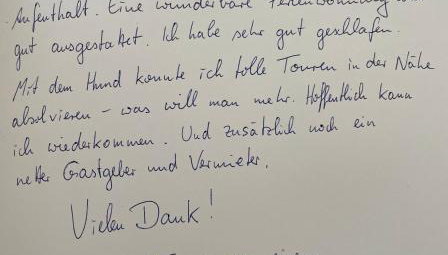 Aufenthalt. Eine wunderbare Ferienwohnung
gut ausgestattet. Ich habe sehr gut geschlafen.
Mit dem Hund konnte ich tolle Touren in der Nähe
absolvieren – was will man mehr. Hoffentlich kann
ich wiederkommen. Und zusätzlich noch ein
netter Gastgeber und Vermieter.
Vielen Dank!